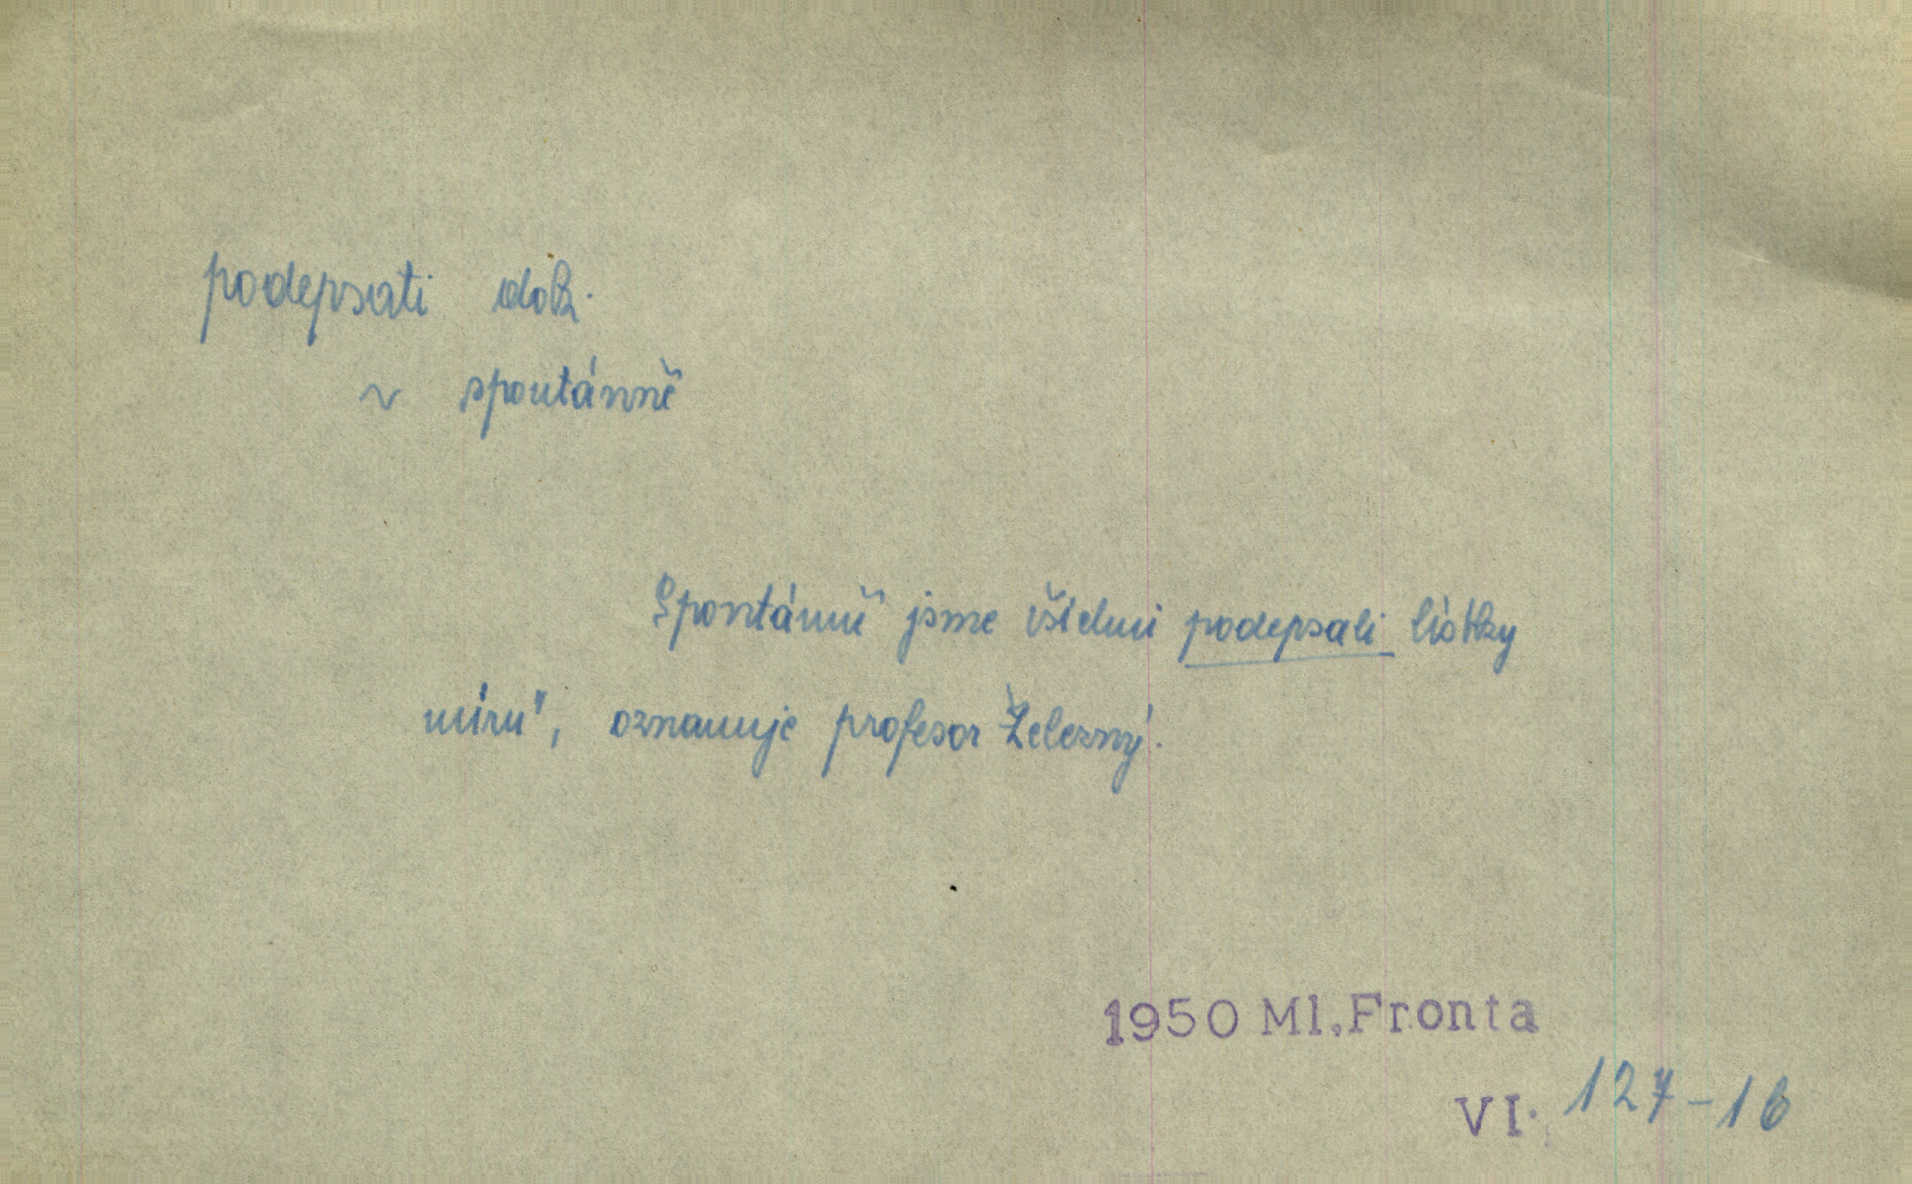 podepsati dok.
~ spontánně
Spontánně jsme všichni podepsali lístky
míru", oznamuje profesor Železný.
1950 Ml.Fronta
VI. 127-1b